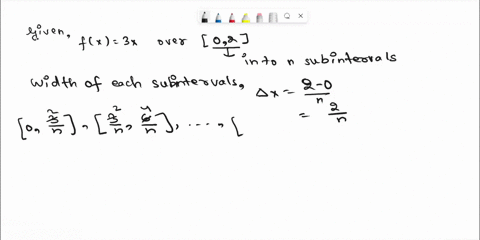 given, f(x)=3x over [0,2]
into n subintervals
width of each subintervals, Δx = 2-0/n
= 2/n
[0, 2/n], [2/n, 4/n], ...., [